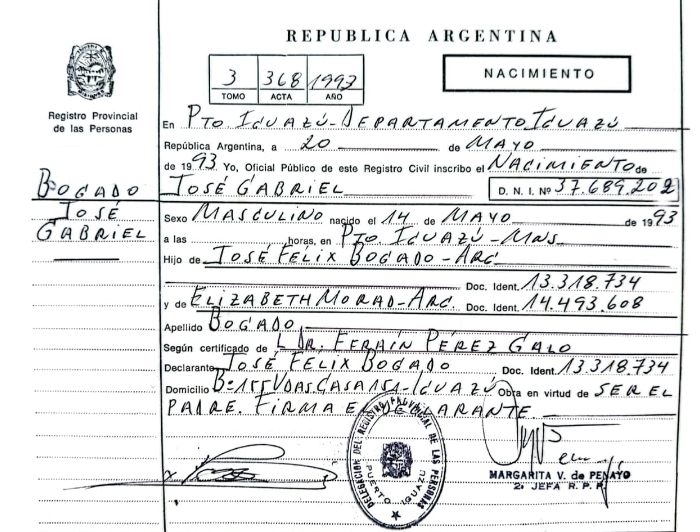 REPUBLICA ARGENTINA
3 368 1993
TOMO ACTA AÑO
NACIMIENTO
Registro Provincial
de las Personas
En PTO IGUAZÚ-DEPARTAMENTO IGUAZÚ
República Argentina, a 20 de MAYO
de 1993 Yo, Oficial Público de este Registro Civil inscribo el NACIMIENTO de
JOSÉ GABRIEL D. N. I. Nº 37.689.202
BOGADO
JOSÉ
GABRIEL
Sexo MASCULINO nacido el 14 de MAYO de 1993
a las horas, en PTO IGUAZÚ-MNS
Hijo de JOSÉ FELIX BOGADO-ARG
Doc. Ident. 13.318.734
y de ELIZABETH MORAD-ARG. Doc. Ident. 14.493.608
Apellido BOGADO
Según certificado de DR. FERMÍN PÉREZ GALO
Declarante JOSÉ FELIX BOGADO Doc. Ident. 13.318.734
Domicilio IGUAZÚ Obra en virtud de SER EL
PADRE. FIRMA EL DECLARANTE.
DELEGACION DEL REGISTRO PROVINCIAL DE LAS PERSONAS
PUERTO IGUAZU
MARGARITA V. de PENAYO
2ª JEFA R. P. P.